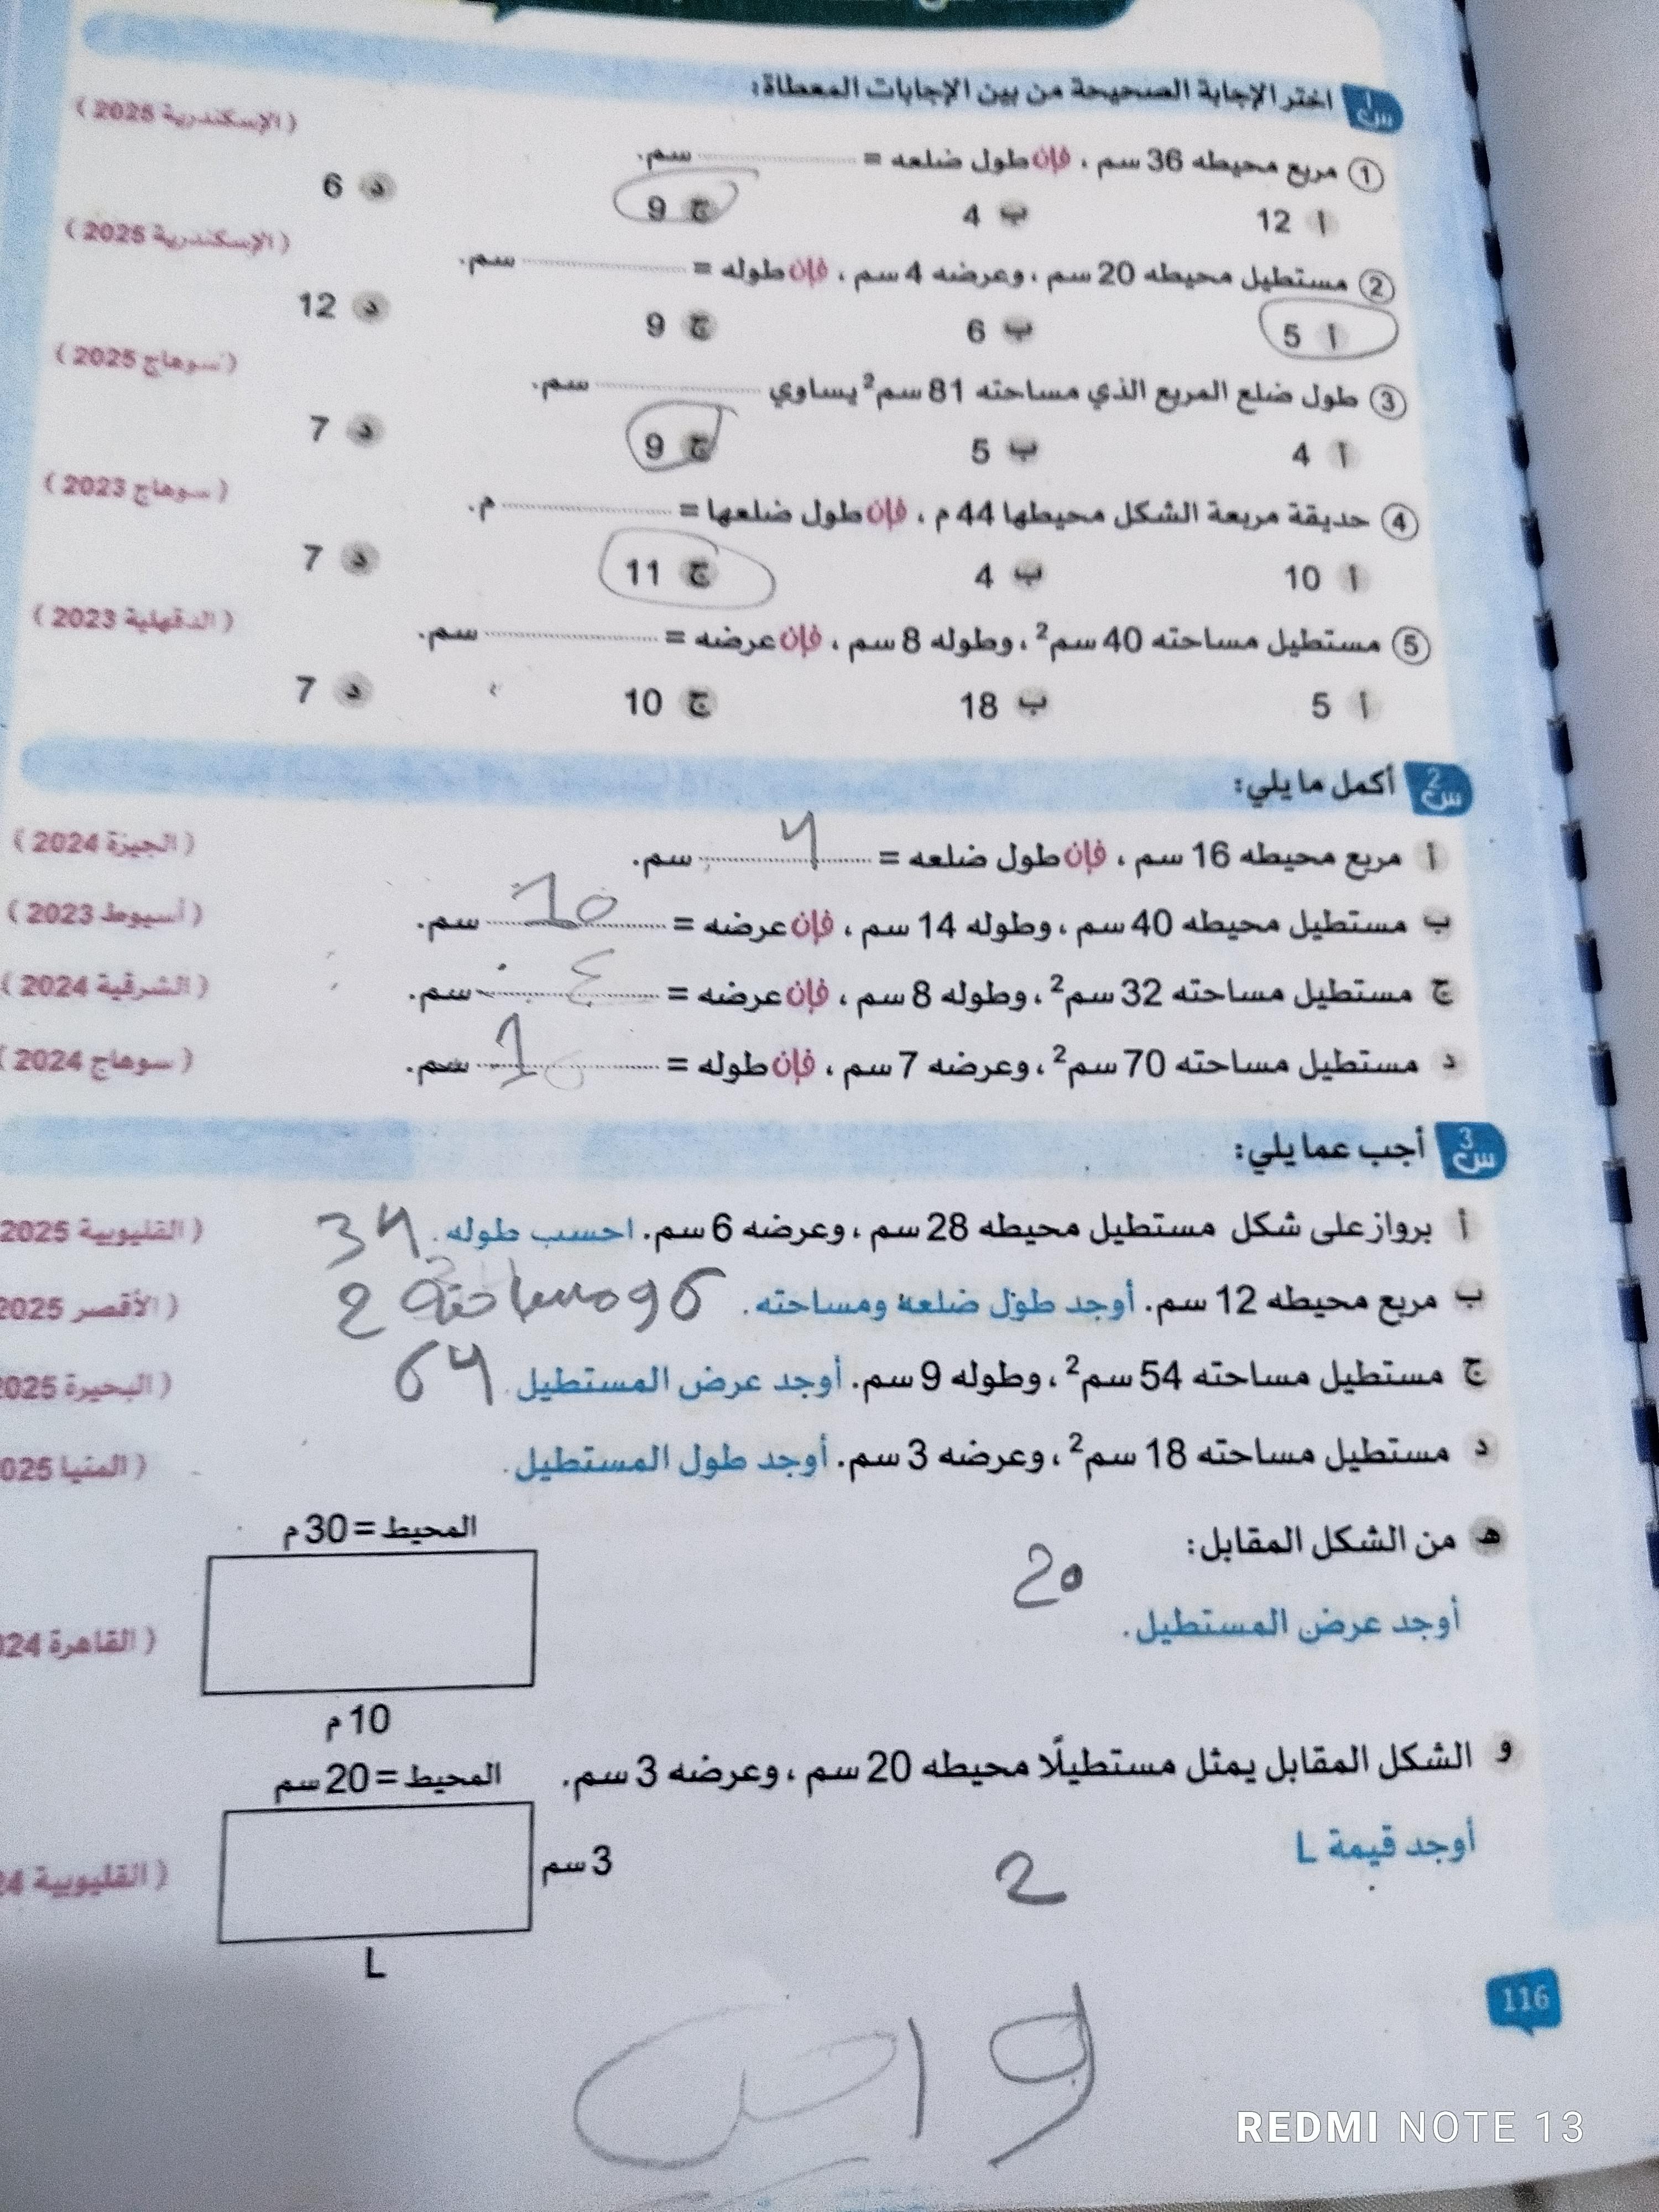 س1 اختر الإجابة الصحيحة من بين الإجابات المعطاة:
1 مربع محيطه 36 سم ، فإن طول ضلعه = ........ سم. (الإسكندرية 2025)
أ 12 ب 4 ج 9 د 6
2 مستطيل محيطه 20 سم ، وعرضه 4 سم ، فإن طوله = ........ سم. (الإسكندرية 2025)
أ 5 ب 6 ج 9 د 12
3 طول ضلع المربع الذي مساحته 81 سم² يساوي ........ سم. (سوهاج 2025)
أ 4 ب 5 ج 9 د 7
4 حديقة مربعة الشكل محيطها 44 م ، فإن طول ضلعها = ........ م. (سوهاج 2023)
أ 10 ب 4 ج 11 د 7
5 مستطيل مساحته 40 سم² ، وطوله 8 سم ، فإن عرضه = ........ سم. (الدقهلية 2023)
أ 5 ب 18 ج 10 د 7
س2 أكمل ما يلي:
أ مربع محيطه 16 سم ، فإن طول ضلعه = 4 سم. (الجيزة 2024)
ب مستطيل محيطه 40 سم ، وطوله 14 سم ، فإن عرضه = 10 سم. (أسيوط 2023)
ج مستطيل مساحته 32 سم² ، وطوله 8 سم ، فإن عرضه = ٤ سم. (الشرقية 2024)
د مستطيل مساحته 70 سم² ، وعرضه 7 سم ، فإن طوله = 10 سم. (سوهاج 2024)
س3 أجب عما يلي:
أ برواز على شكل مستطيل محيطه 28 سم ، وعرضه 6 سم. احسب طوله. 34 (القليوبية 2025
ب مربع محيطه 12 سم. أوجد طول ضلعه ومساحته. 6 ومساحته 2 (الأقصر 2025
ج مستطيل مساحته 54 سم² ، وطوله 9 سم. أوجد عرض المستطيل. 64 (البحيرة 2025
د مستطيل مساحته 18 سم² ، وعرضه 3 سم. أوجد طول المستطيل. (المنيا 025
هـ من الشكل المقابل: المحيط = 30 م
20
أوجد عرض المستطيل. (القاهرة 24
10 م
و الشكل المقابل يمثل مستطيلًا محيطه 20 سم ، وعرضه 3 سم. المحيط = 20 سم
أوجد قيمة L 2 3 سم (القليوبية 4
L
116
REDMI NOTE 13